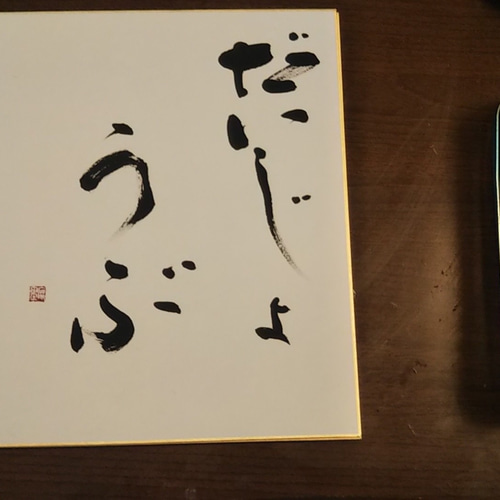 だいじょ
うぶ